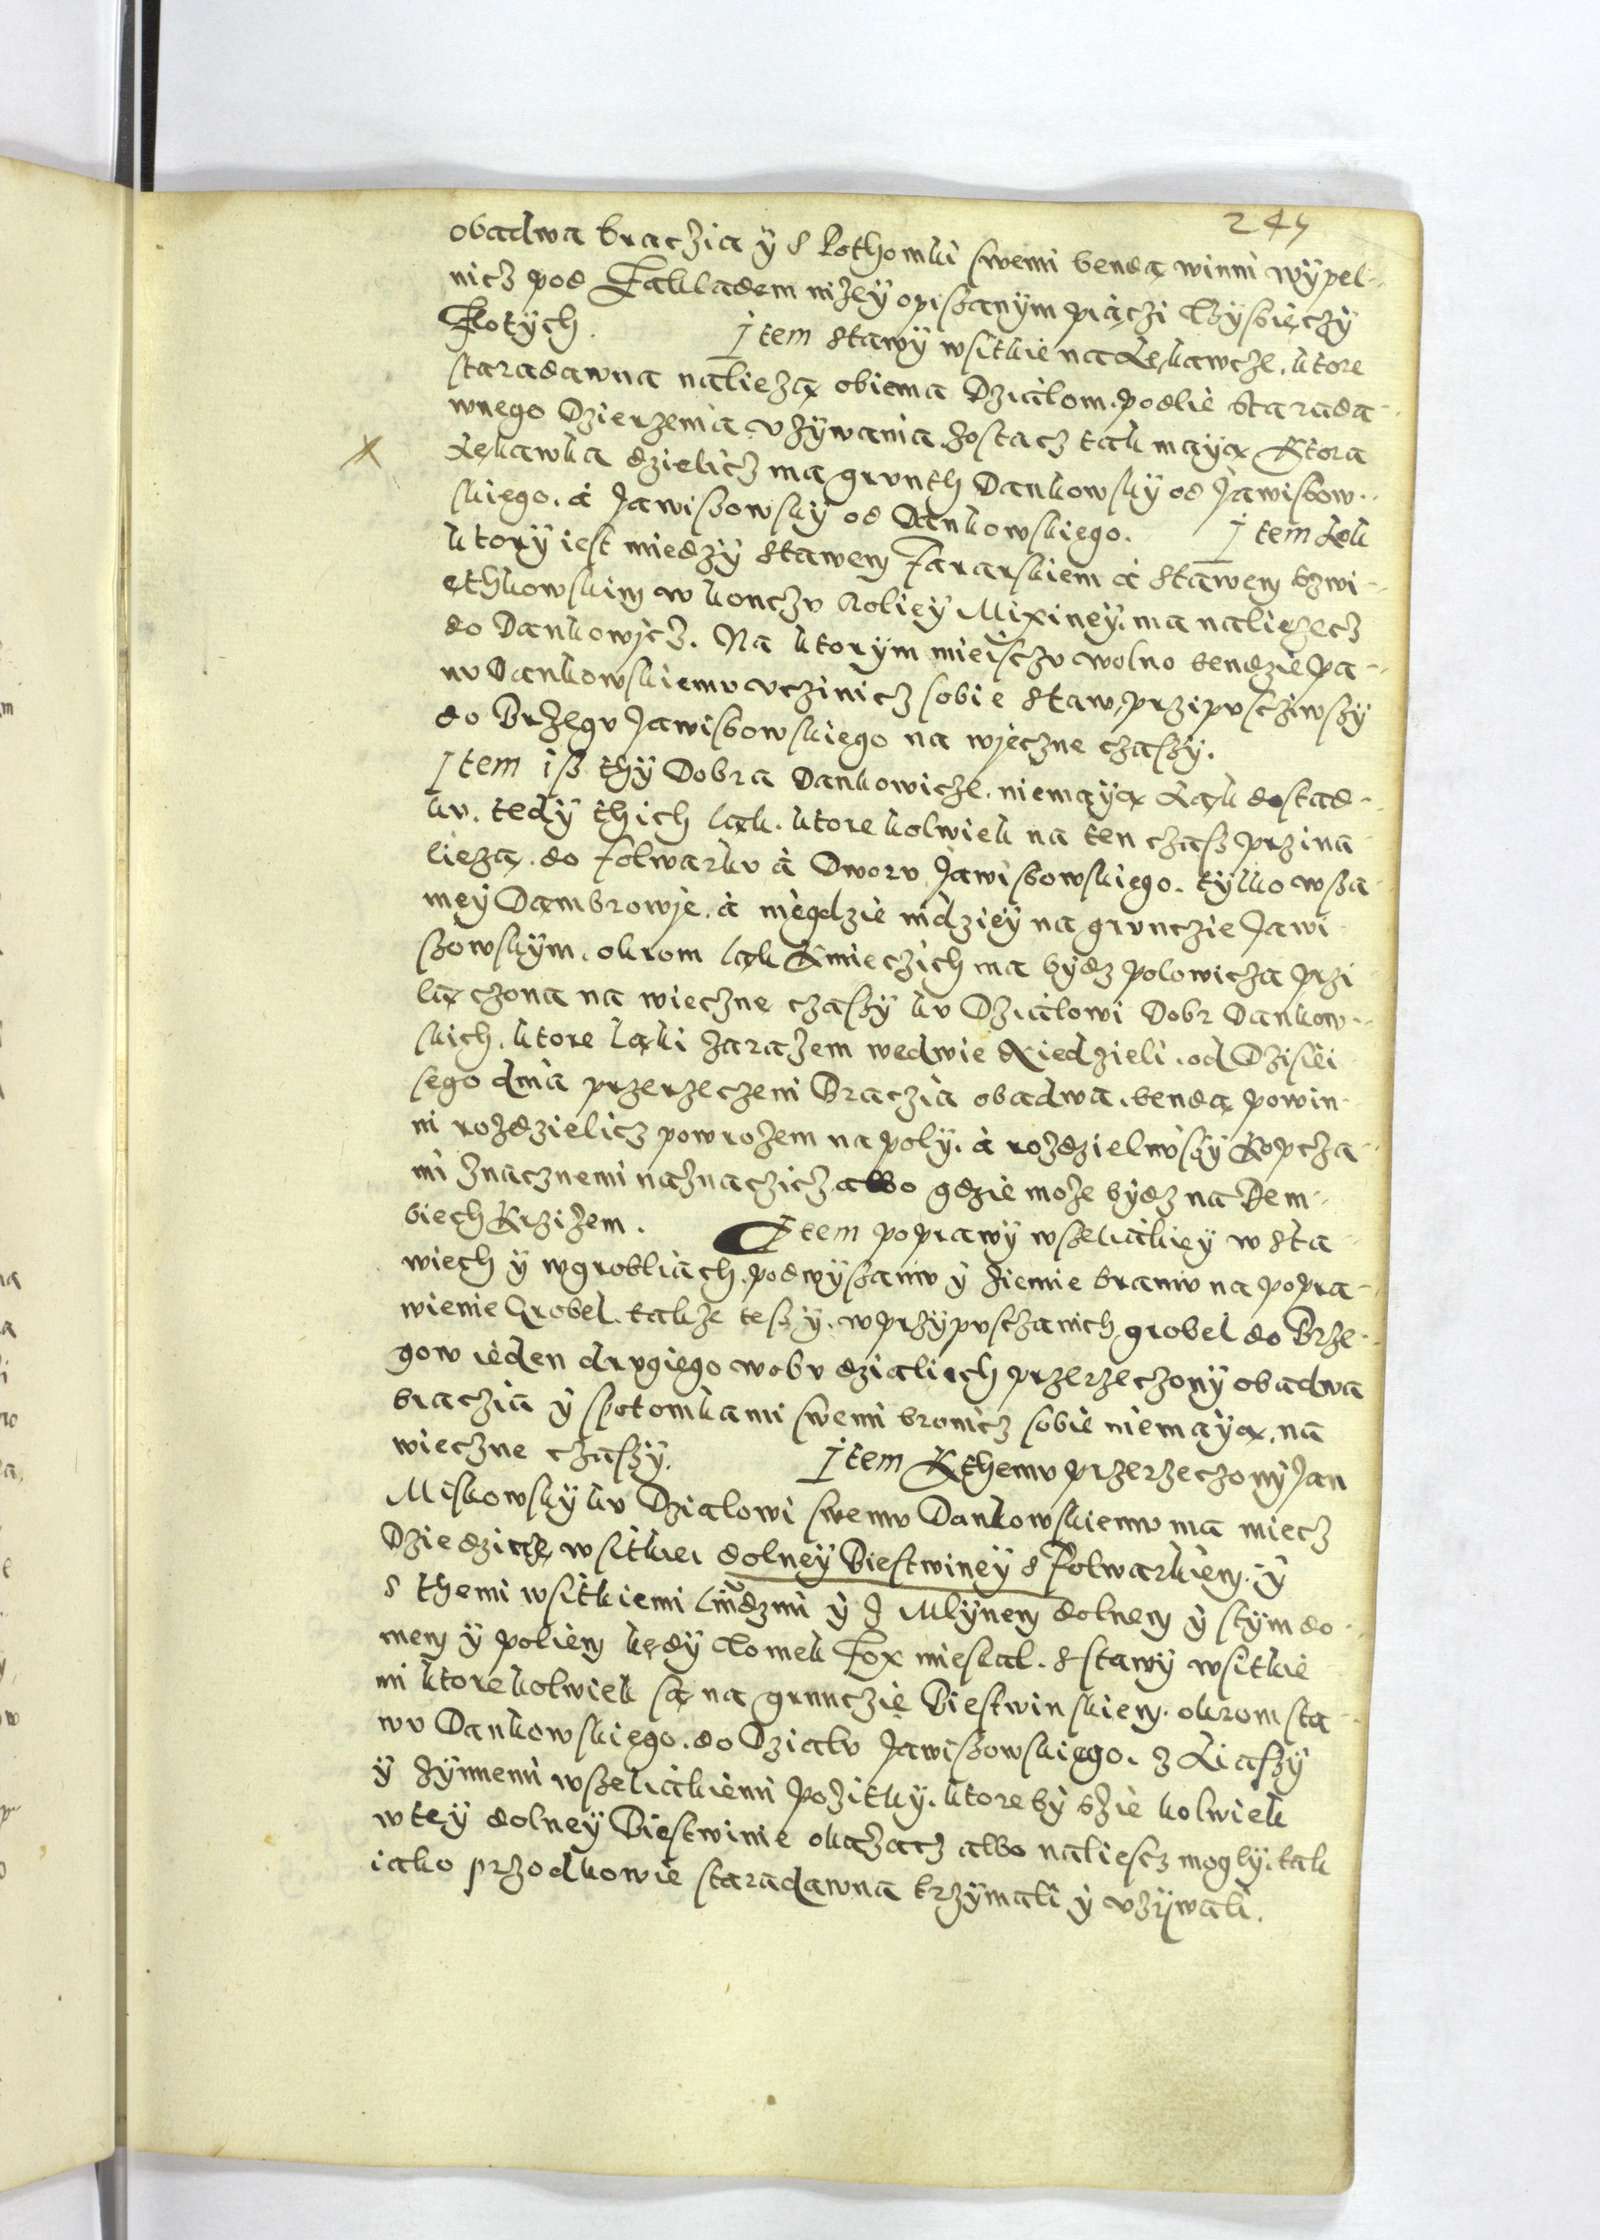 245
obadwa braczia ÿ s Pothomki swemi benda winni wÿpel-
nicz pod Zakladem nizeÿ opiszanÿm piączi Tzysięczÿ
Zlotÿch. Item Stawÿ wsitkie na Łękawcze, ktore
staradawna nalieżą obiema Dzialom, podlie starada-
wnego Dzierzenia vzÿwania zostacz tak mayą Ktora
Łękawka dzielicz ma grunth Dankowskÿ od Jawiszow-
skiego, á Jawiszowskÿ od Dankowskiego. Item Łek
ktorÿ iest miedzÿ Stawem Fararskiem á Stawem kzwi-
ethkowskim w konczu Roliey Mixineÿ, ma nalieżecz
do Dankowicz. Na ktorÿm mieisczu wolno bendzie Pa-
nu Dankowskiemu vczinicz sobie Staw, przipusciwszÿ
do Brzegu Jawiszowskiego na wieczne czaszÿ.
Item isz thÿ Dobra Dankowicze, niemayą Łąk dostad-
ku, tedÿ thich łąk, ktorekolwiek na ten czasz przina-
lieżą do folwarku á Dworu Jawiszowskiego, tÿlko w sza-
meÿ Dąmbrowie, á niegdzie indzieÿ na grunczie Jawi-
szowskÿm, okrom łąk Kmieczich ma bÿdz polowicza przi-
łączona na wieczne czaszÿ ku Dzialowi Dobr Dankow-
skich, ktore łąki zarazem wedwie Niedzieli, od Dzisiei-
sego dnia przerzeczeni Braczia obadwa, benda powin-
ni rozdzielicz powrozem na polÿ, á rozdzeliwszÿ Kopcza-
mi znacznemi naznaczicz albo gdzie może bÿdz na Dem-
biech Krziżem. Item poprawÿ wszeliakieÿ w Sta-
wiech ÿ w grobliach, podwÿszaniu ÿ ziemie braniu na popra-
wienie Grobel, także teszÿ, w przÿpusczanich grobel do Brze-
gow ieden drugiego w obu dzialiech przerzeczonÿ obadwa
braczia ÿ s potomkami swemi bronicz sobie niemayą, na
wieczne czaszÿ. Item Kthemu przerzeczonÿ Jan
Miskowskÿ ku Dzialowi swemu Dankowskiemu ma miecz
Dziedzicze wsitkiei dolneÿ Biestwineÿ s Folwarkiem, ÿ
s themi wsitkiemi liudzmi ÿ z Mlÿnem dolnem ÿ s tÿm do-
mem ÿ poliem kędÿ Tomek Fox mieskal, s stawÿ wsitkie-
mi ktorekolwiek są na grunczie Biestwinskiem, okrom sta-
wu Dankowskiego, do Dzialu Jawiszowskiego, z Liaszÿ
ÿ zÿnnemi wszeliakiemi Pozitkÿ, ktorebÿ szie kolwiek
w teÿ dolneÿ Biestwinie okazacz albo naliescz moglÿ, tak
iako przodkowie staradawna trzÿmali ÿ vzÿwali.